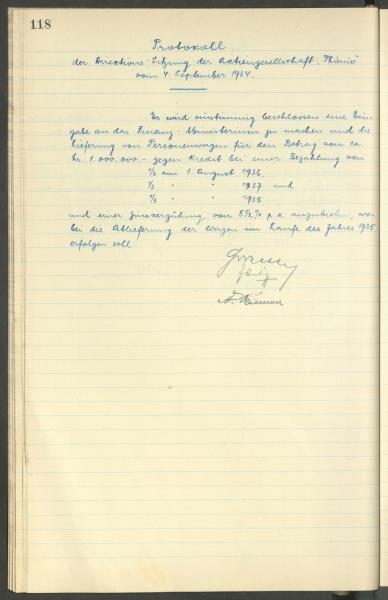 118
Protokoll
der Direktions-Sitzung der Aktiengesellschaft "Phönix"
vom 4. September 1934.
Es wird einstimmig beschlossen eine Ein-
gabe an das Finanz-Ministerium zu machen und die
Lieferung von Personenwagen für den Betrag von ca.
Kr. 1.000.000.- gegen Kredit bei einer Bezahlung von
1/3 am 1. August 1936,
1/3 " " 1937 und
1/3 " " 1938
und einer Zinsvergütung von 5 1/2 % p.a. anzubieten, wo-
bei die Ablieferung der Wagen im Laufe des Jahres 1935
erfolgen soll